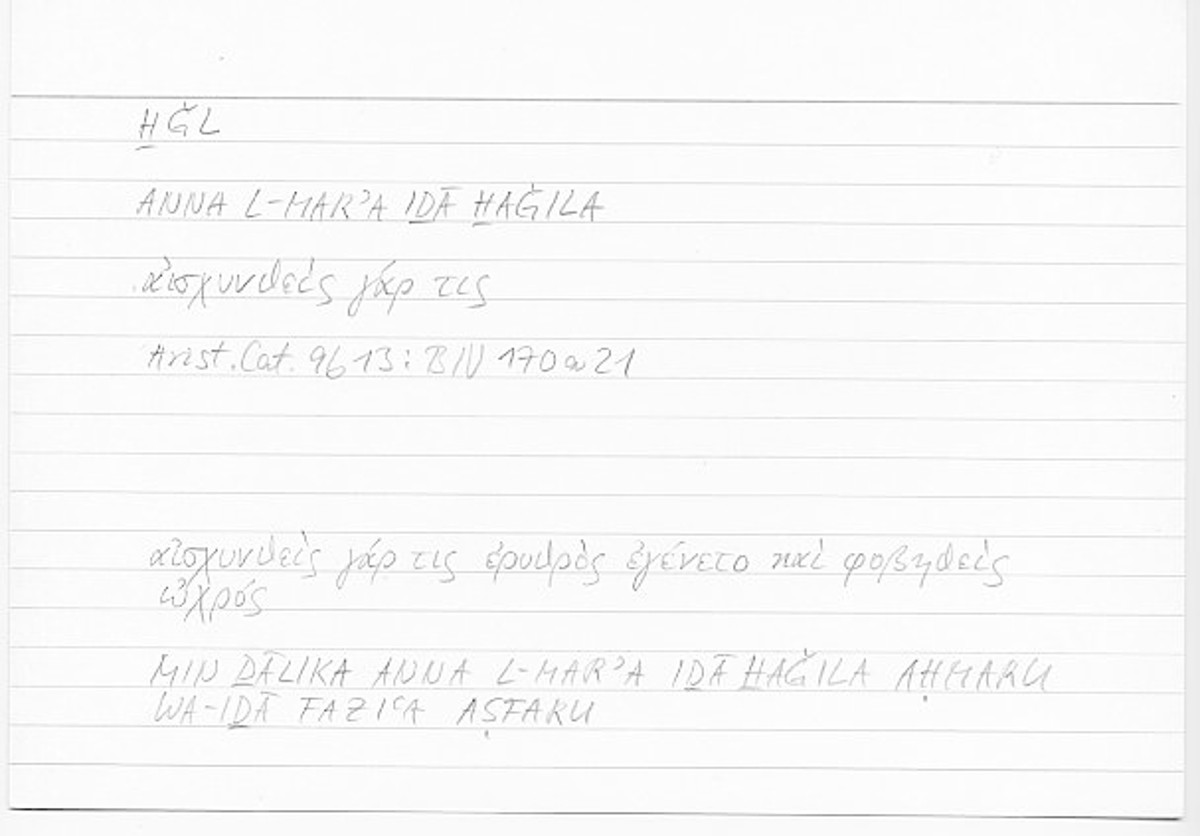 H̱ǦL
ANNA L-MARʾA IḎĀ H̱AǦILA
αἰσχυνθεὶς γάρ τις
Arist. Cat. 9b13: BN 170a21
αἰσχυνθεὶς γάρ τις ἐρυθρὸς ἐγένετο καὶ φοβηθεὶς
ὠχρός
MIN ḎĀLIKA ANNA L-MARʾA IḎĀ H̱AǦILA AḤMARU
WA-IḎĀ FAZIʿA AṢFARU